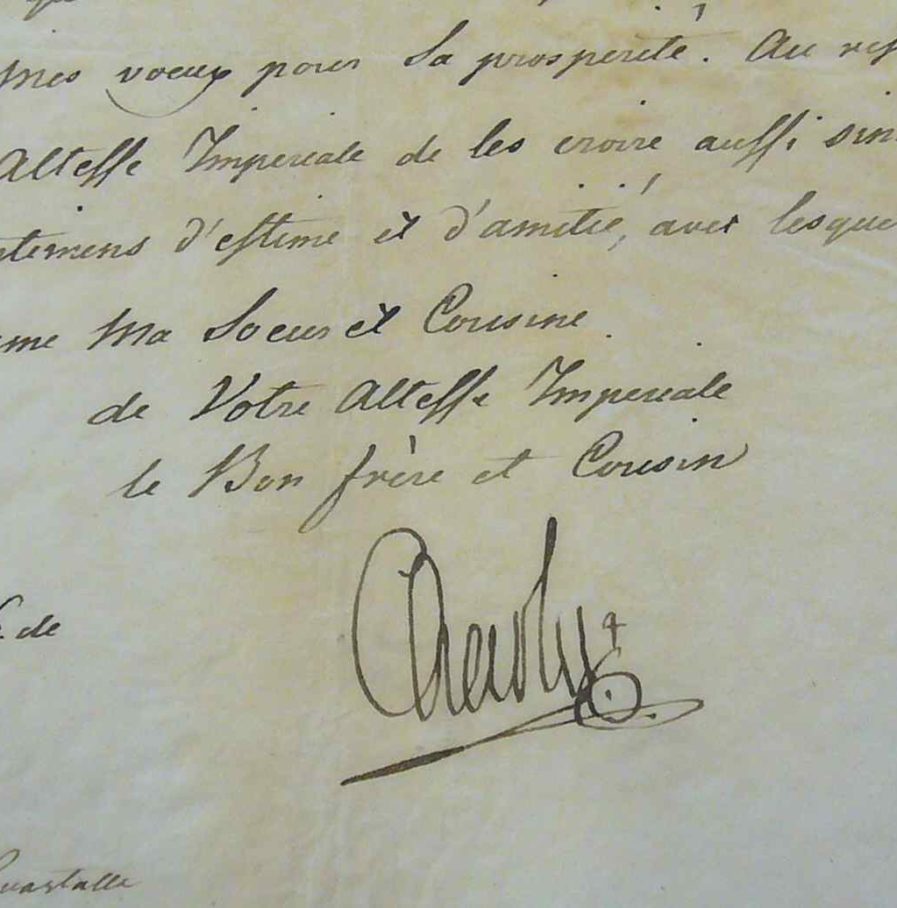 Mes voeux pour Sa prosperité. Au res
Altesse Imperiale de les croire aussi sin
ntimens d'estime et d'amitié, avec lesque
me Ma Soeur et Cousine
de Votre Altesse Imperiale
le Bon frère et Cousin
de
Guastalle